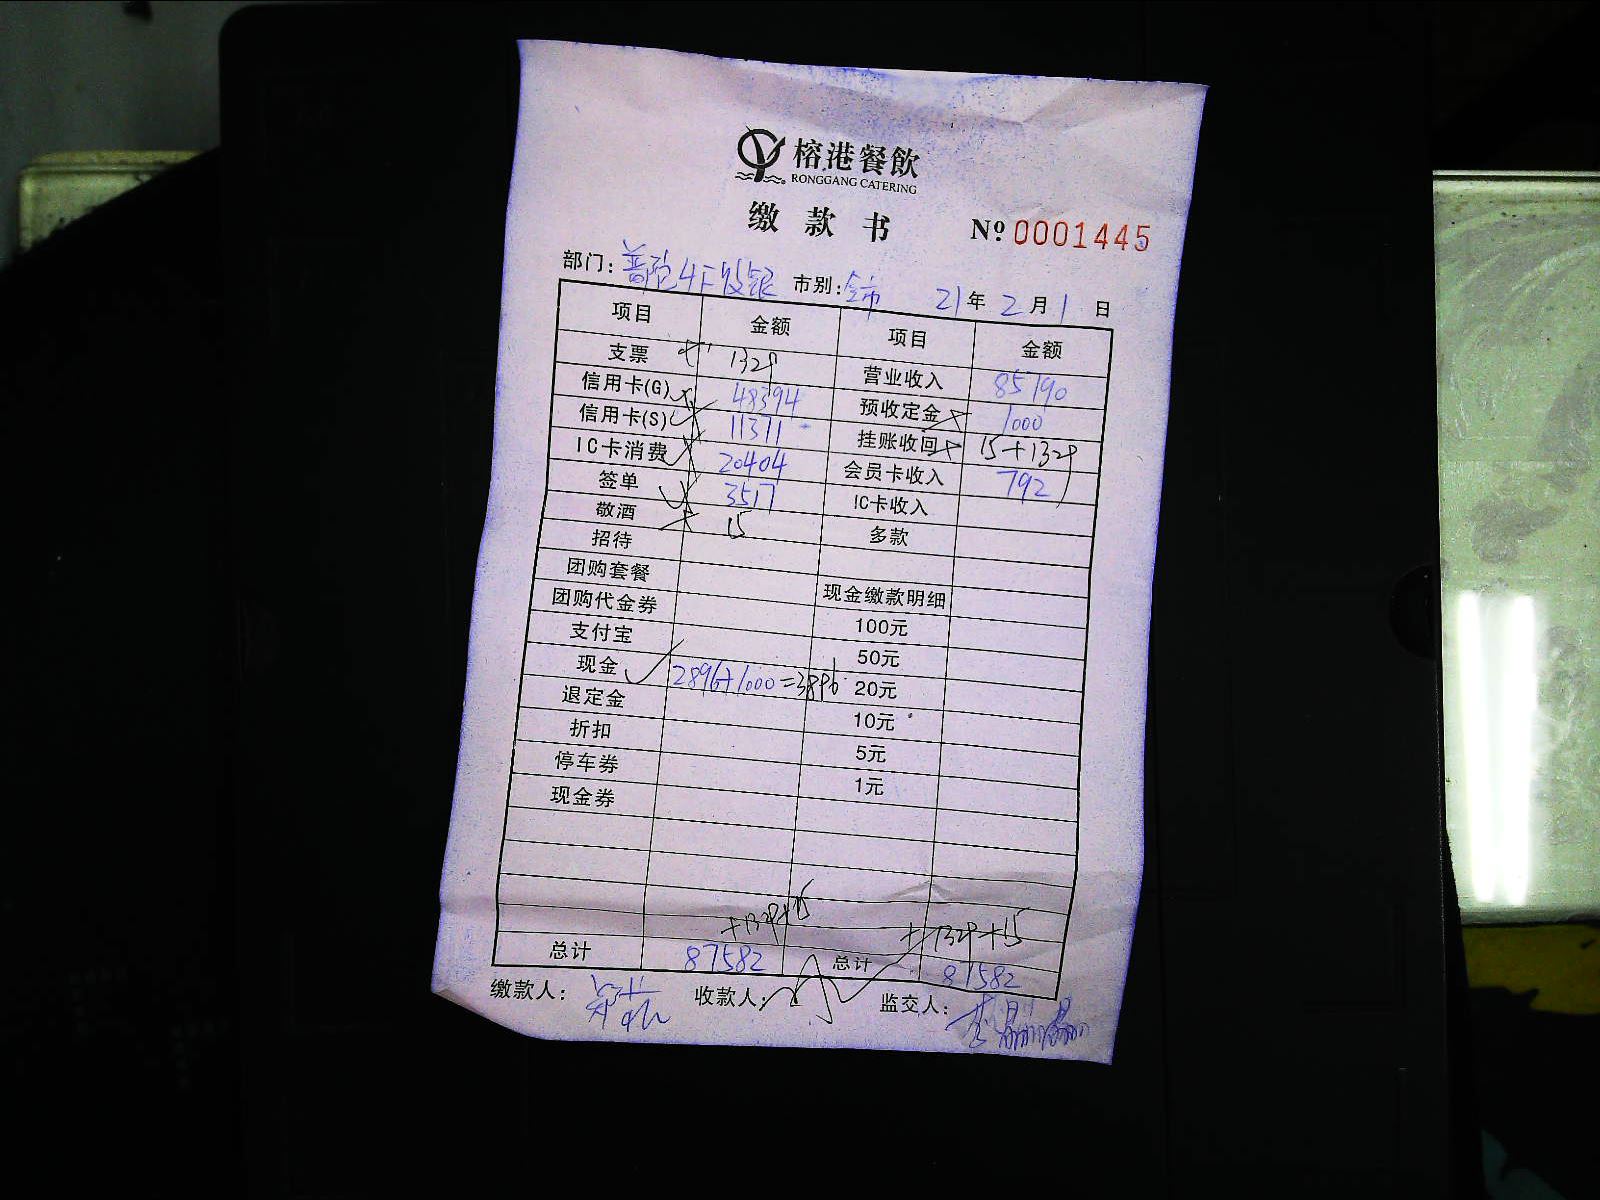 榕港餐飲
RONGGANG CATERING
缴款书 Nº 0001445
部门: 普陀4F收银 市别: 全市 21年2月1日
项目 金额 项目 金额
支票 1329 营业收入 85790
信用卡(G) 48394 预收定金 1000
信用卡(S) 11371 挂账收回 15+1329
IC卡消费 20404 会员卡收入 792
签单 3517 IC卡收入
敬酒 15 多款
招待
团购套餐 现金缴款明细
团购代金券 100元
支付宝 50元
现金 2896+1000=3896 20元
退定金 10元
折扣 5元
停车券 1元
现金券
+1329+15 +1329+15
总计 87582 总计 87582
缴款人: 收款人: 监交人: